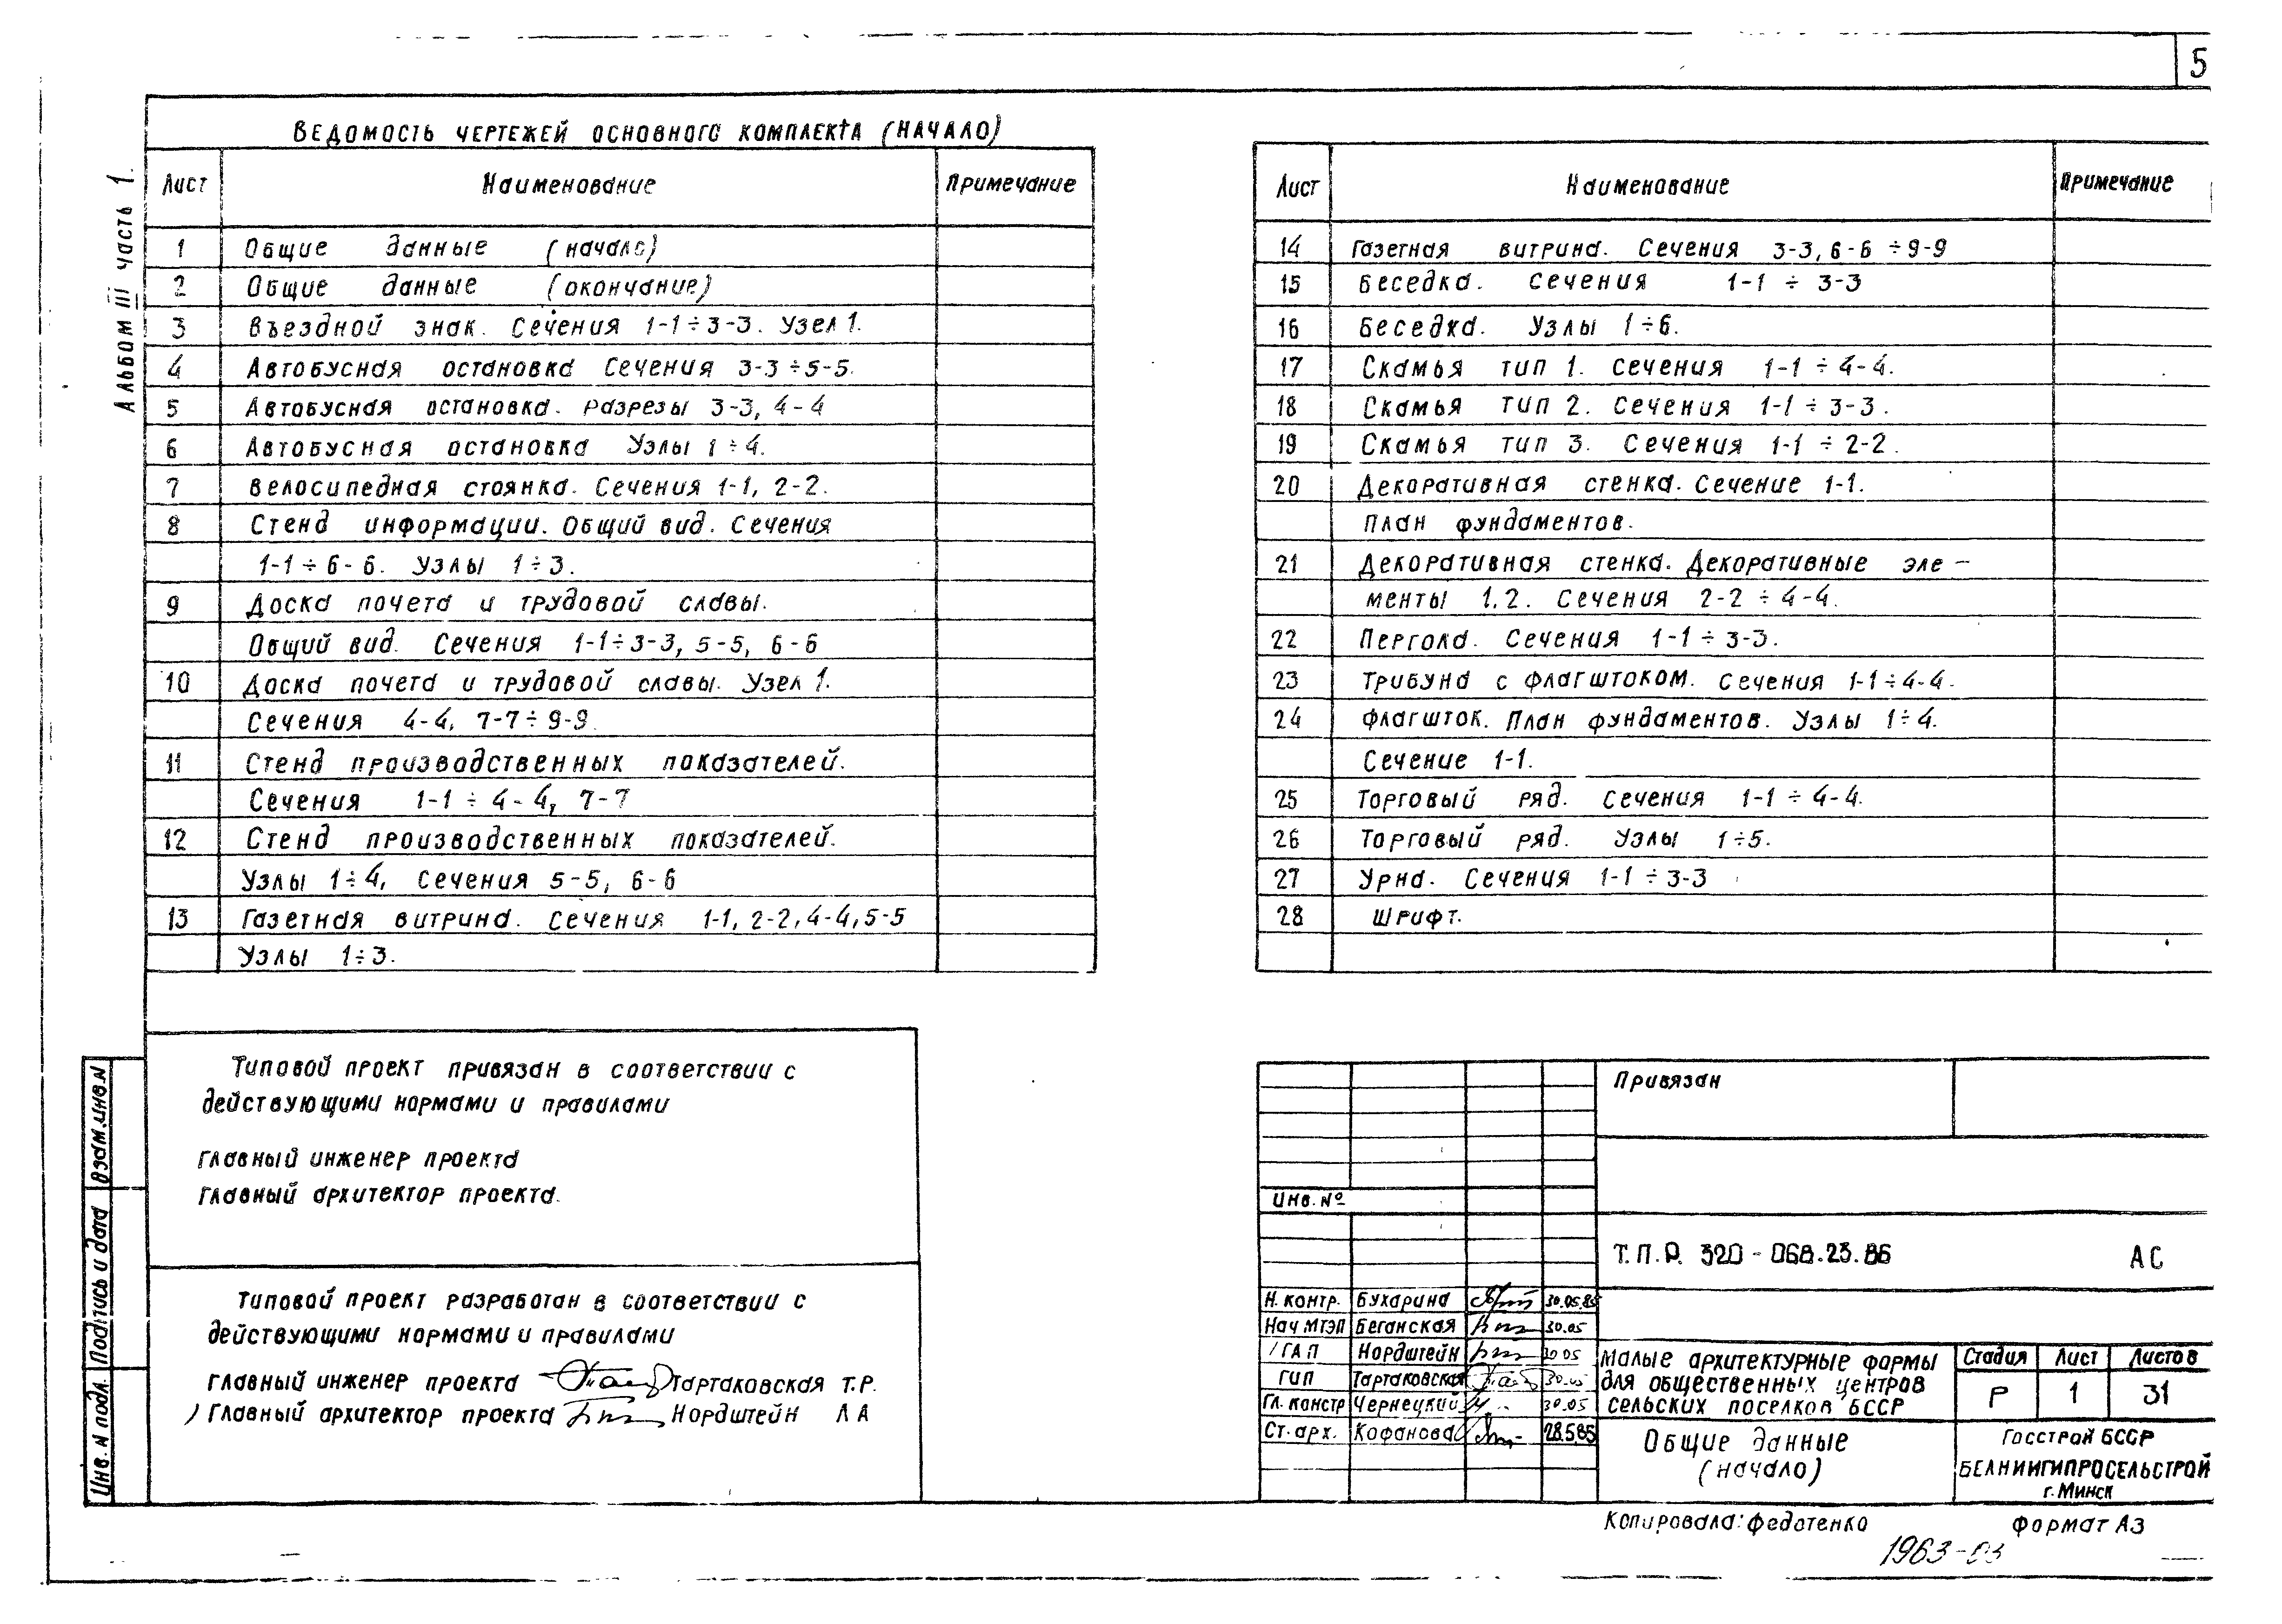 5
Альбом III часть 1.
Ведомость чертежей основного комплекта (начало)
Лист Наименование Примечание
1 Общие данные (начало)
2 Общие данные (окончание)
3 Въездной знак. Сечения 1-1÷3-3. Узел 1.
4 Автобусная остановка Сечения 3-3÷5-5.
5 Автобусная остановка. Разрезы 3-3, 4-4
6 Автобусная остановка Узлы 1÷4.
7 Велосипедная стоянка. Сечения 1-1, 2-2.
8 Стенд информации. Общий вид. Сечения
1-1÷6-6. Узлы 1÷3.
9 Доска почета и трудовой славы.
Общий вид. Сечения 1-1÷3-3, 5-5, 6-6
10 Доска почета и трудовой славы. Узел 1.
Сечения 4-4, 7-7÷9-9.
11 Стенд производственных показателей.
Сечения 1-1÷4-4, 7-7
12 Стенд производственных показателей.
Узлы 1÷4, Сечения 5-5, 6-6
13 Газетная витрина. Сечения 1-1, 2-2, 4-4, 5-5
Узлы 1÷3.
Лист Наименование Примечание
14 Газетная витрина. Сечения 3-3, 6-6÷9-9
15 Беседка. Сечения 1-1÷3-3
16 Беседка. Узлы 1÷6.
17 Скамья тип 1. Сечения 1-1÷4-4.
18 Скамья тип 2. Сечения 1-1÷3-3.
19 Скамья тип 3. Сечения 1-1÷2-2.
20 Декоративная стенка. Сечение 1-1.
План фундаментов.
21 Декоративная стенка. Декоративные эле-
менты 1,2. Сечения 2-2÷4-4.
22 Пергола. Сечения 1-1÷3-3.
23 Трибуна с флагштоком. Сечения 1-1÷4-4.
24 Флагшток. План фундаментов. Узлы 1÷4.
Сечение 1-1.
25 Торговый ряд. Сечения 1-1÷4-4.
26 Торговый ряд. Узлы 1÷5.
27 Урна. Сечения 1-1÷3-3
28 Шрифт.
Типовой проект привязан в соответствии с
действующими нормами и правилами
Главный инженер проекта
Главный архитектор проекта.
Типовой проект разработан в соответствии с
действующими нормами и правилами
Главный инженер проекта Тартаковская Т.Р.
Главный архитектор проекта Нордштейн Л А
Инв. N подл. Подпись и дата Взам.инв.N
Привязан
Инв. №
Т.П.Р. 320-068.23.86 АС
Н. контр. Бухарина 30.05.85
Нач МТЭП Беганская 30.05
ГАП Нордштейн 30 05
ГИП Тартаковская 30.05
Гл. констр Чернецкий 30.05
Ст. арх. Кофанова 28.5.85
Малые архитектурные формы
для общественных центров
сельских поселков БССР
Стадия Лист Листов
Р 1 31
Общие данные
(начало)
Госстрой БССР
БЕЛНИИГИПРОСЕЛЬСТРОЙ
г. Минск
Копировала: Федотенко Формат А3
1963-03